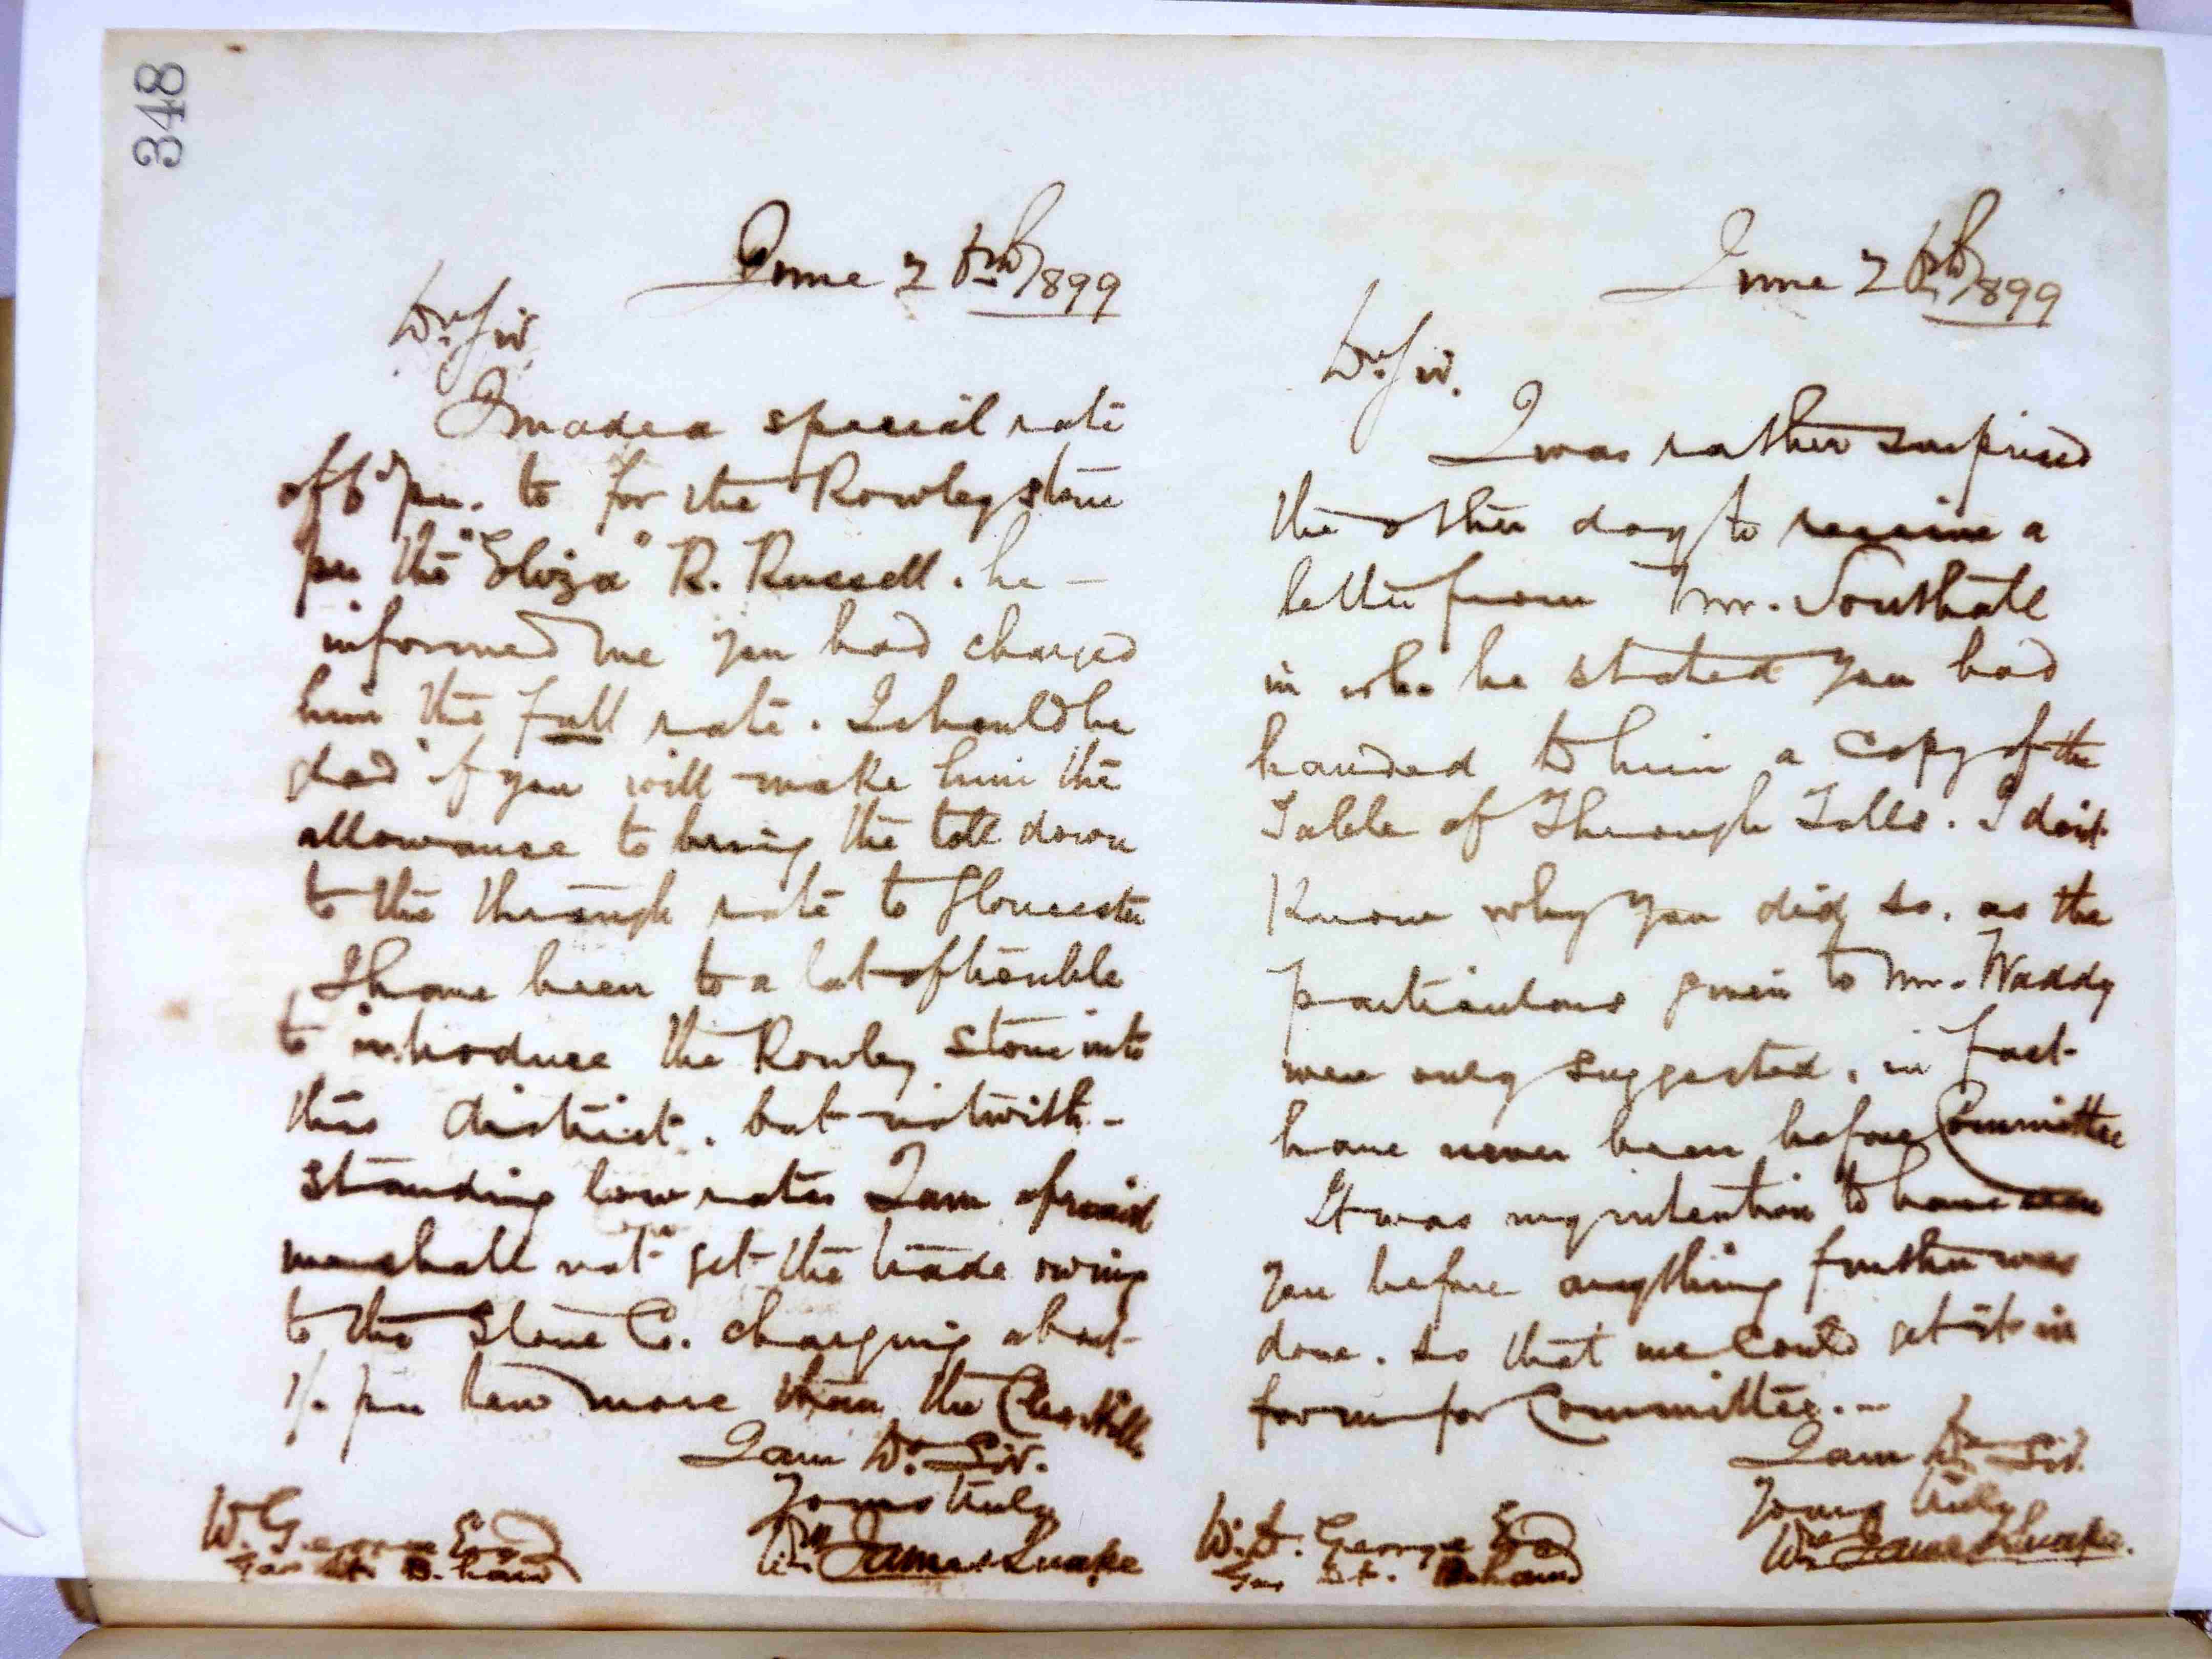 348
June 7th/1899
Dr. Sir,
I made a special rate
of 6d per. to for the Rowley stone
per the "Eliza" R. Russell. he -
informed me you had charged
him the full rate. I should be
glad if you will make him the
allowance to bring the toll down
to the through rate to Gloucester
I have been to a lot of trouble
to introduce the Rowley stone into
this district. but notwith-
standing low rates I am afraid
we shall not get the trade owing
to the Stone Co. charging about
1/- per ton more than the Clee Hill.
I am Dr. Sir.
Yours truly
Wm James
W. George Esq
Gas St. B.ham
June 7th/1899
Dr. Sir.
I was rather surprised
the other day to receive a
letter from Mr. Southall
in whc he stated you had
handed to him a copy of the
Table of Through Tolls. I don't
Know why you did so. as the
particulars given to Mr. Waddy
were only suggested, in fact
have never been before Committee
It was my intention to have seen
you before anything further was
done. so that we could get it in
form for Committee. -
I am Dr Sir.
Yours truly
Wm James
W. H. George Esq
Gas St. B.ham